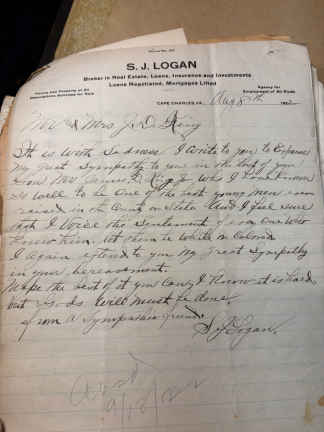 S. J. LOGAN
Broker in Real Estate, Loans, Insurance and Investments
Loans Negotiated, Mortgages Lifted
Agency for
CAPE CHARLES VA.,
Mr & Mrs J. D. King
It is with Sadness I write to you to Express
My great Sympathy to you in the loss of your
Son Mr James King Jr Who I have known
so well to be One of the best young men ever
raised in the County or State And I feel sure
that I voice the Sentiment of every One Who
Knew him, let them be White or Colored
I again extend to you My great Sympathy
in your bereavement.
Make the best of it you can, I know it is hard
but God's Will must be done
from a Sympathic friend
S J Logan.